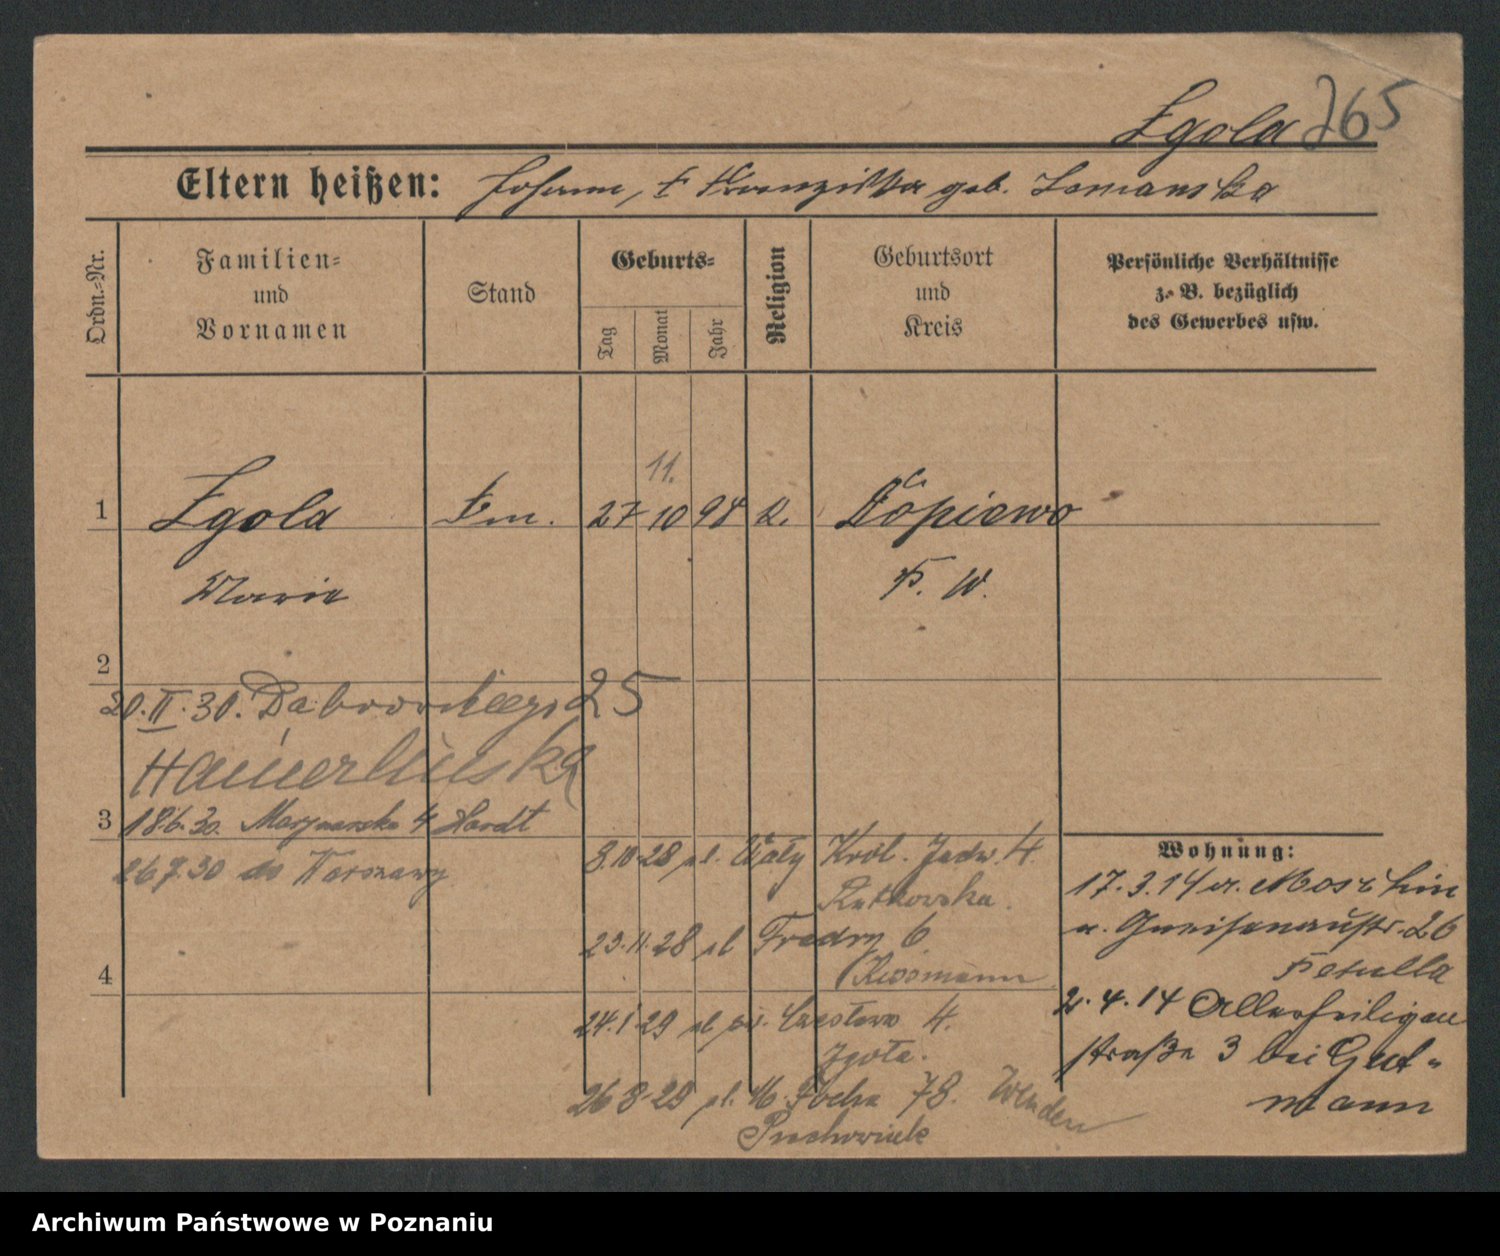 Zgola 265
Eltern heißen: Johann, u Franziska geb. Lemanska
Ordn.-Nr.
Familien-
und
Vornamen
Stand
Geburts-
Tag
Monat
Jahr
Religion
Geburtsort
und
Kreis
Persönliche Verhältnisse
z. B. bezüglich
des Gewerbes usw.
11.
1 Zgola 27 10 98 k. Dopiewo
Marie P. W.
2
20.II.30. Dabrowskiego 25
3 18.6.30. Marynarska 4 Hardt
26.7.30 do Warszawy
3.10.28 pl. Wały Król. Jadw. 4
Rutkowska.
23.11.28 pl Fredry 6
(Rissmann
4
24.1.29 św. Czesława 4.
Zgoła.
26 8 29 pl. M. Focha 78. Wenden
Wohnung:
17.3.14 a. Moschin
n. Gneisenaustr. 26
2.4.14 Allerheiligen
straße 3 bei Gut-
mann
Archiwum Państwowe w Poznaniu